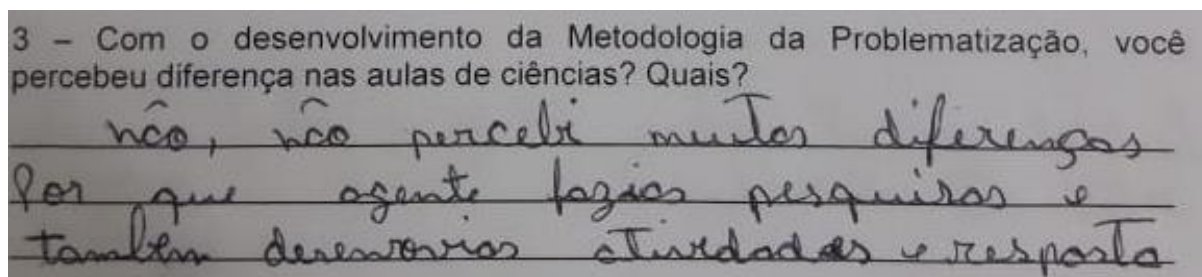 3 – Com o desenvolvimento da Metodologia da Problematização, você
percebeu diferença nas aulas de ciências? Quais?
não, não percebi muitas diferenças
Por que agente fazias pesquisas e
também desenvovias atividades e resposta